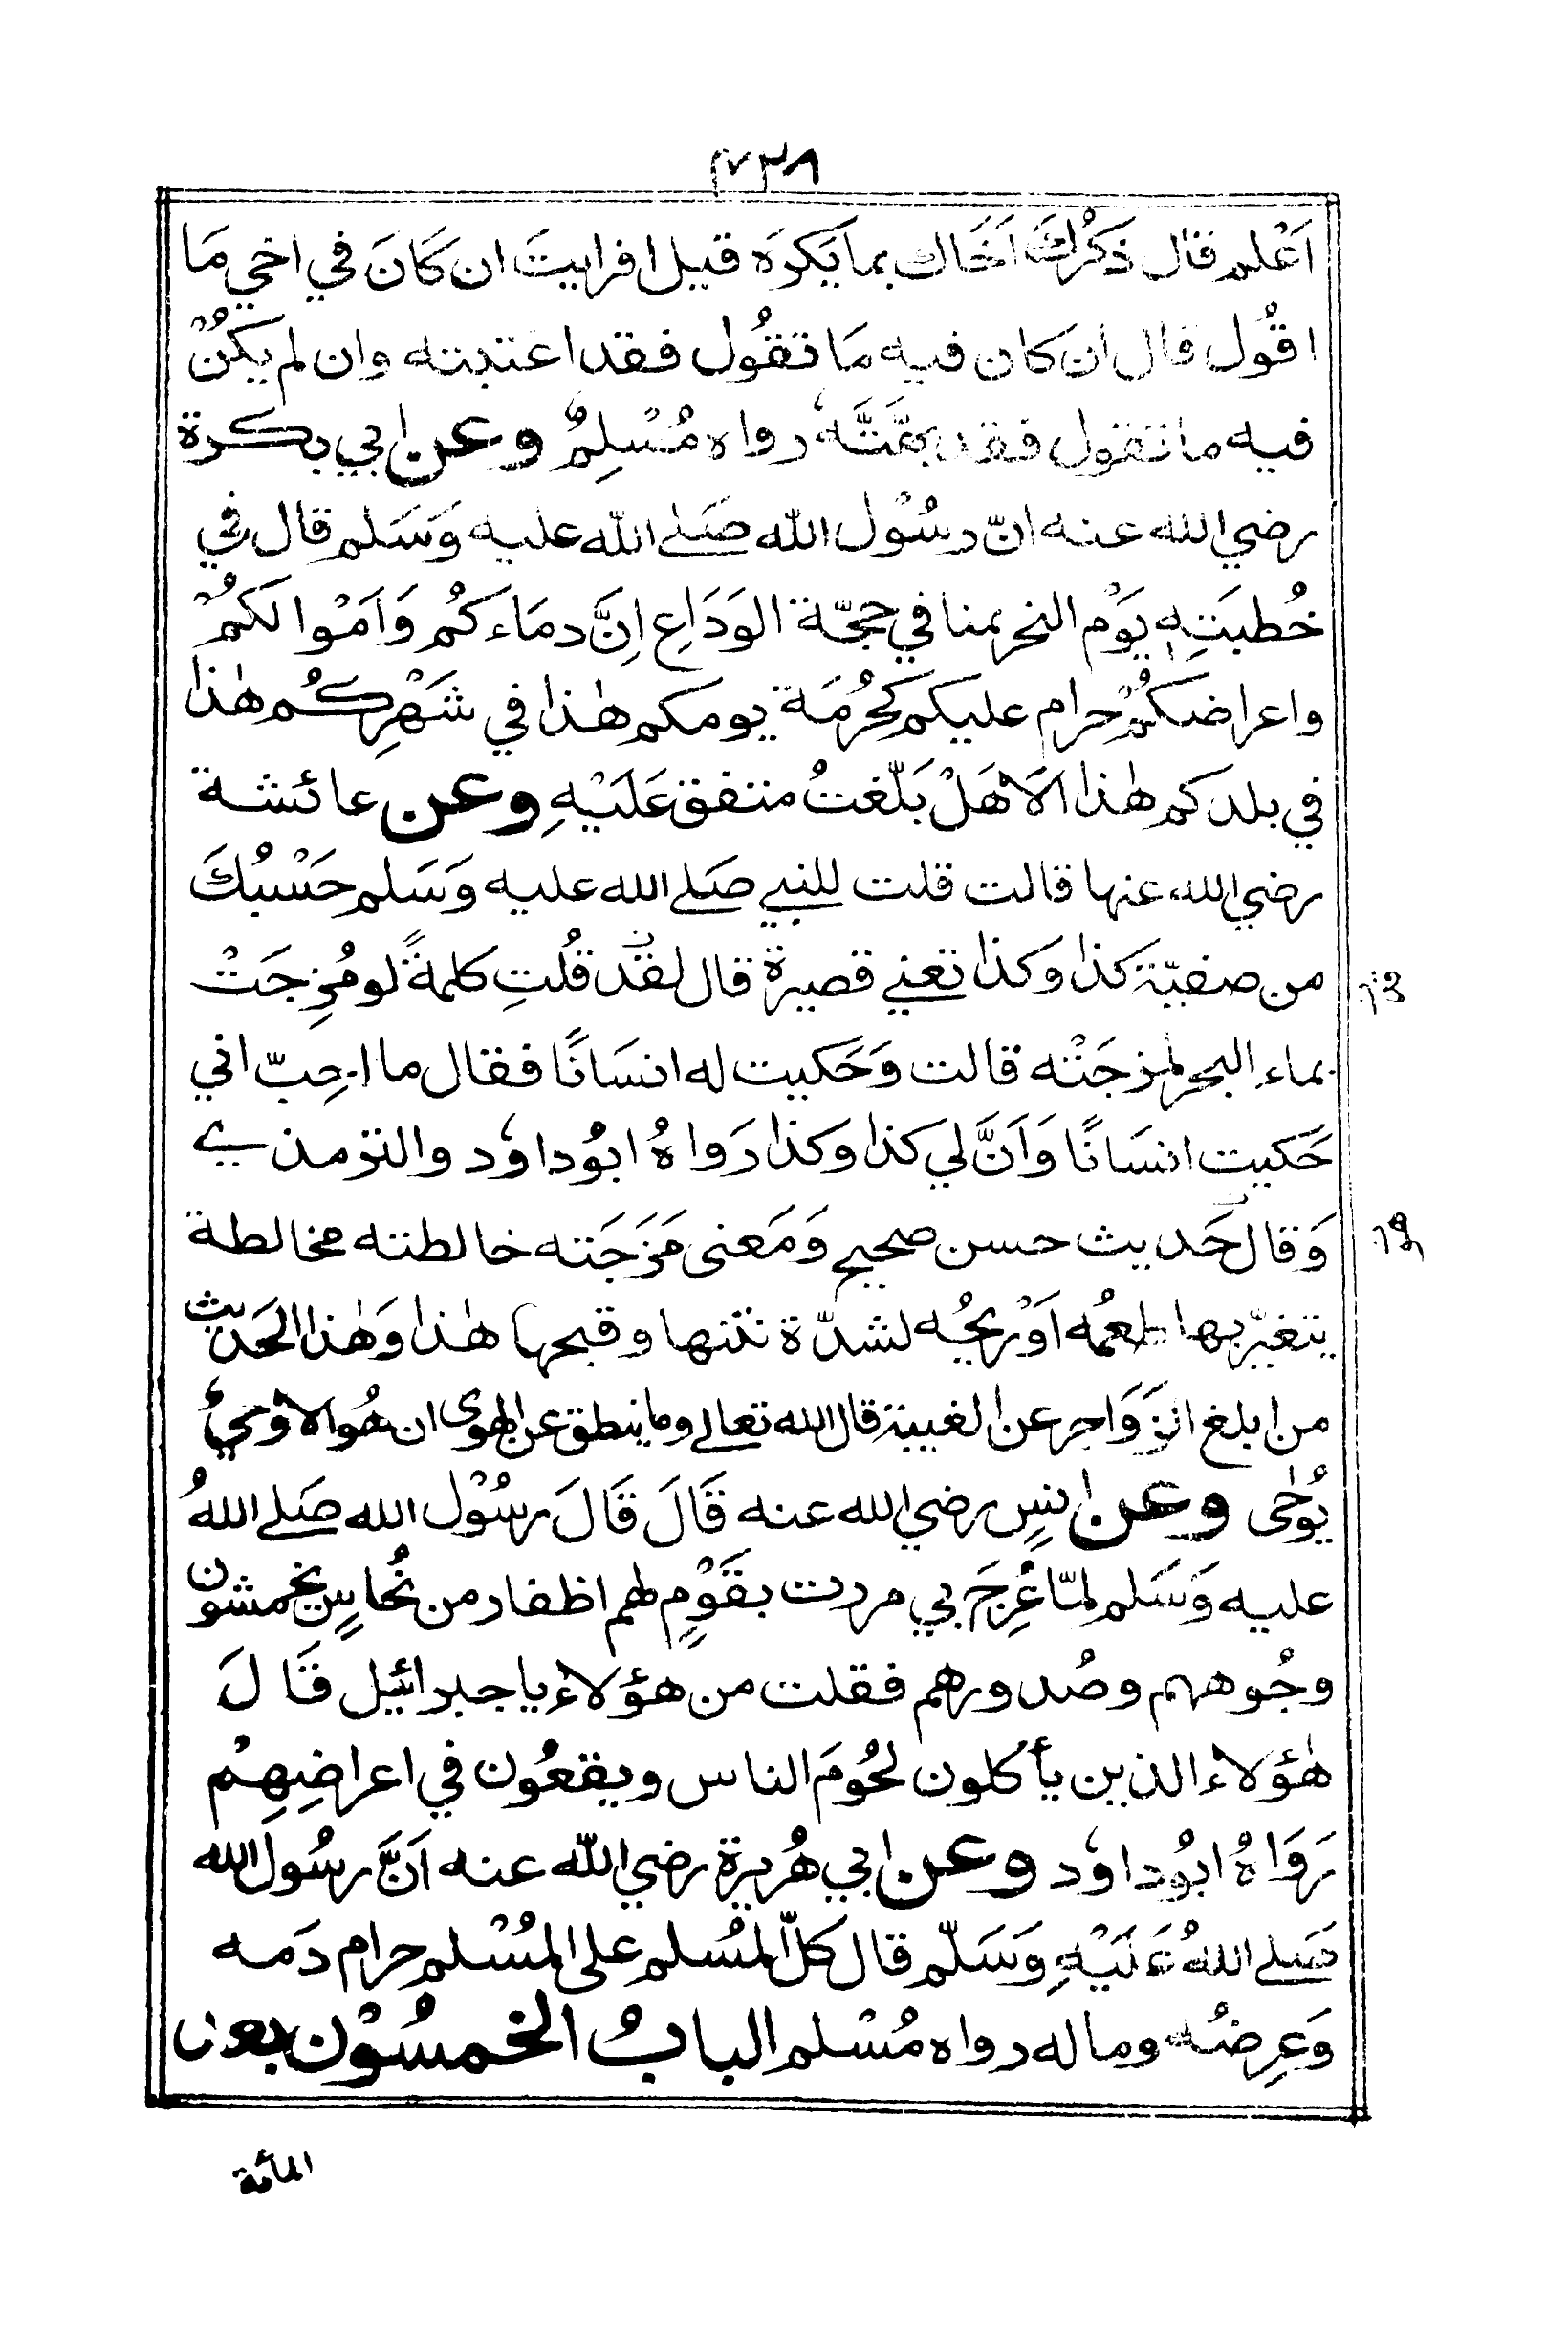 اَعْلم قال ذكْرُكَ اَخَاك بما يَكرَه قيل افرايتَ ان كَانَ في اخي مَا
اقُول قال ان كان فيه مَا تقُول فقد اغتبته وان لم يكُنْ
فيه ما تقول فقد بهَتَّه رواه مُسْلِمٌ وعن ابي بكرة
رضي الله عنه انّ رسُوْل الله صَلے الله عليه وَسَلم قال في
خُطبَتِهٖ يَوْم النحر بمنا في حجّة الوَدَاعِ اِنَّ دمَاءَكُم وَاَمْوالكُمْ
واعراضكُمْ حرام عليكم كحُرمَة يومكم هٰذا في شَهْرِكُم هٰذا
في بلدكم هٰذا اَلَا هَلْ بَلّغتُ متفق عَلَيْهِ وعن عائشة
رضي الله عنها قالت قلت للنبي صَلے الله عليه وَسَلم حَسْبُكَ
من صفيّة كذا وكذا تعني قصيرة قال لقد قُلتِ كلمةً لو مُزِجَتْ
بماء البحر لمزجَتْه قالت وَحَكيت له انسَانًا فقال ما احِبّ اني
حَكيت انسَانًا وَاَنَّ لي كذا وكذا رَواهُ ابُوداوٗد والترمذے
وَقال حَديث حسن صحيح وَمَعنى مَزَجَته خالطته مخالطة
يتغيّر بها طعمُه اَوْ ريحُه لشدّة نتنها وقبحها هٰذا وَهٰذا الحَديث
من ابلغ الزوَاجر عن الغيبة قال الله تعالے وما ينطق عن الهوى ان هُوالا وَحيٌ
يُوحٰى وعن انسٍ رضي الله عنه قَالَ قَالَ رسُوْل الله صَلے اللهُ
عليه وَسَلم لمّا عُرِجَ بي مررت بقَوْمٍ لهم اظفار من نُحاسٍ يخمشون
وجُوههم وصُدورهم فقلت من هؤلاء يا جبرائيل قَالَ
هٰؤلاء الذين يأكلون لحُومَ الناس ويقعُون في اعراضِهِمْ
رَوَاهُ ابُوداوٗد وعن ابي هُريرة رضي الله عنه اَنَّ رسُول الله
صَلے اللهُ عَلَيْهِ وَسَلّم قال كلّ المسُلم على المُسْلم حرام دَمه
وَعِرضُه وماله رواه مُسْلم البابُ الخمسُوْن بعد
المأئة